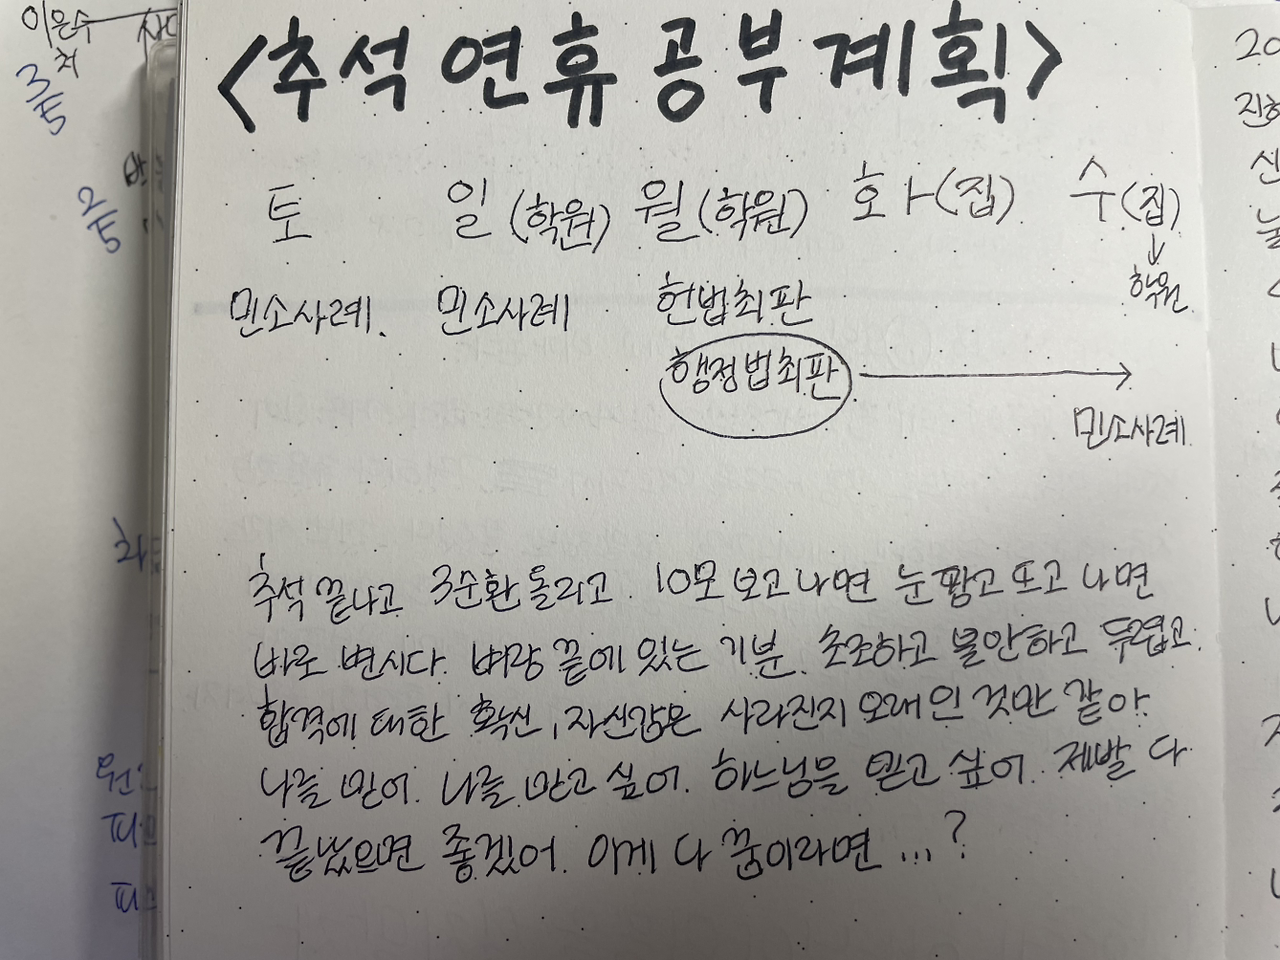 <추석 연휴 공부 계획>
토 일 (학원) 월 (학원) 화 (집) 수 (집)
↓
학원
민소사례. 민소사례 헌법최판
행정법최판 →
민소사례.
추석 끝나고 3순환 돌리고. 10모 보고 나면 눈 팜고 뜨고 나면
바로 변시다. 벼랑 끝에 있는 기분. 초조하고 불안하고 두렵고.
합격에 대한 확신, 자신감은 사라진지 오래인 것만 같아.
나를 믿어. 나를 믿고 싶어. 하느님을 믿고 싶어. 제발 다
끝났으면 좋겠어. 이게 다 꿈이라면 ...?
이은수
3등
2등
20